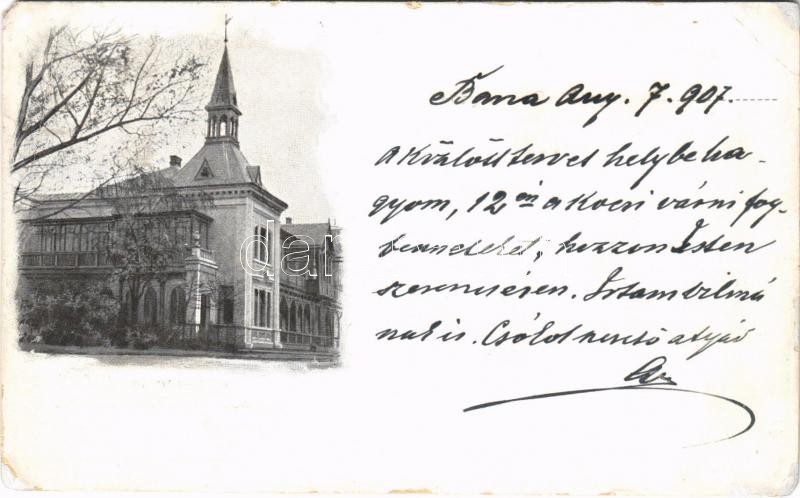 Bana Aug. 7. 907.
a közlött tervet helybe ha-
gyom, 12 én a kocsi várni fog
benneteket, hozzon Isten
szerencsésen. Irtam Vilmá
nak is. Csókol szerető atyád